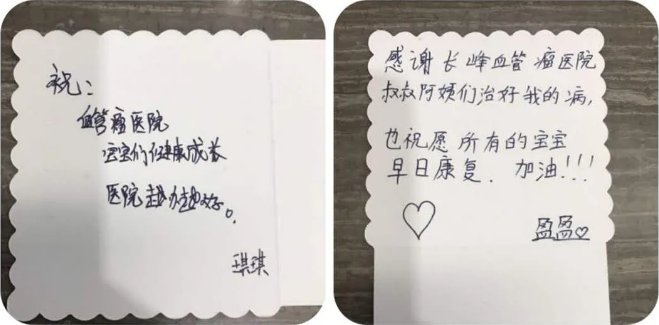 祝：
血管瘤医院
宝宝们健康成长
医院越办越好。
琪琪
感谢长峰血管瘤医院
叔叔阿姨们治好我的病,
也祝愿所有的宝宝
早日康复. 加油!!!
盈盈♡